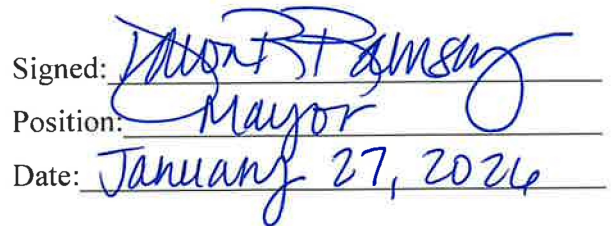 Signed: Ramsey
Position: Mayor
Date: January 27, 2026